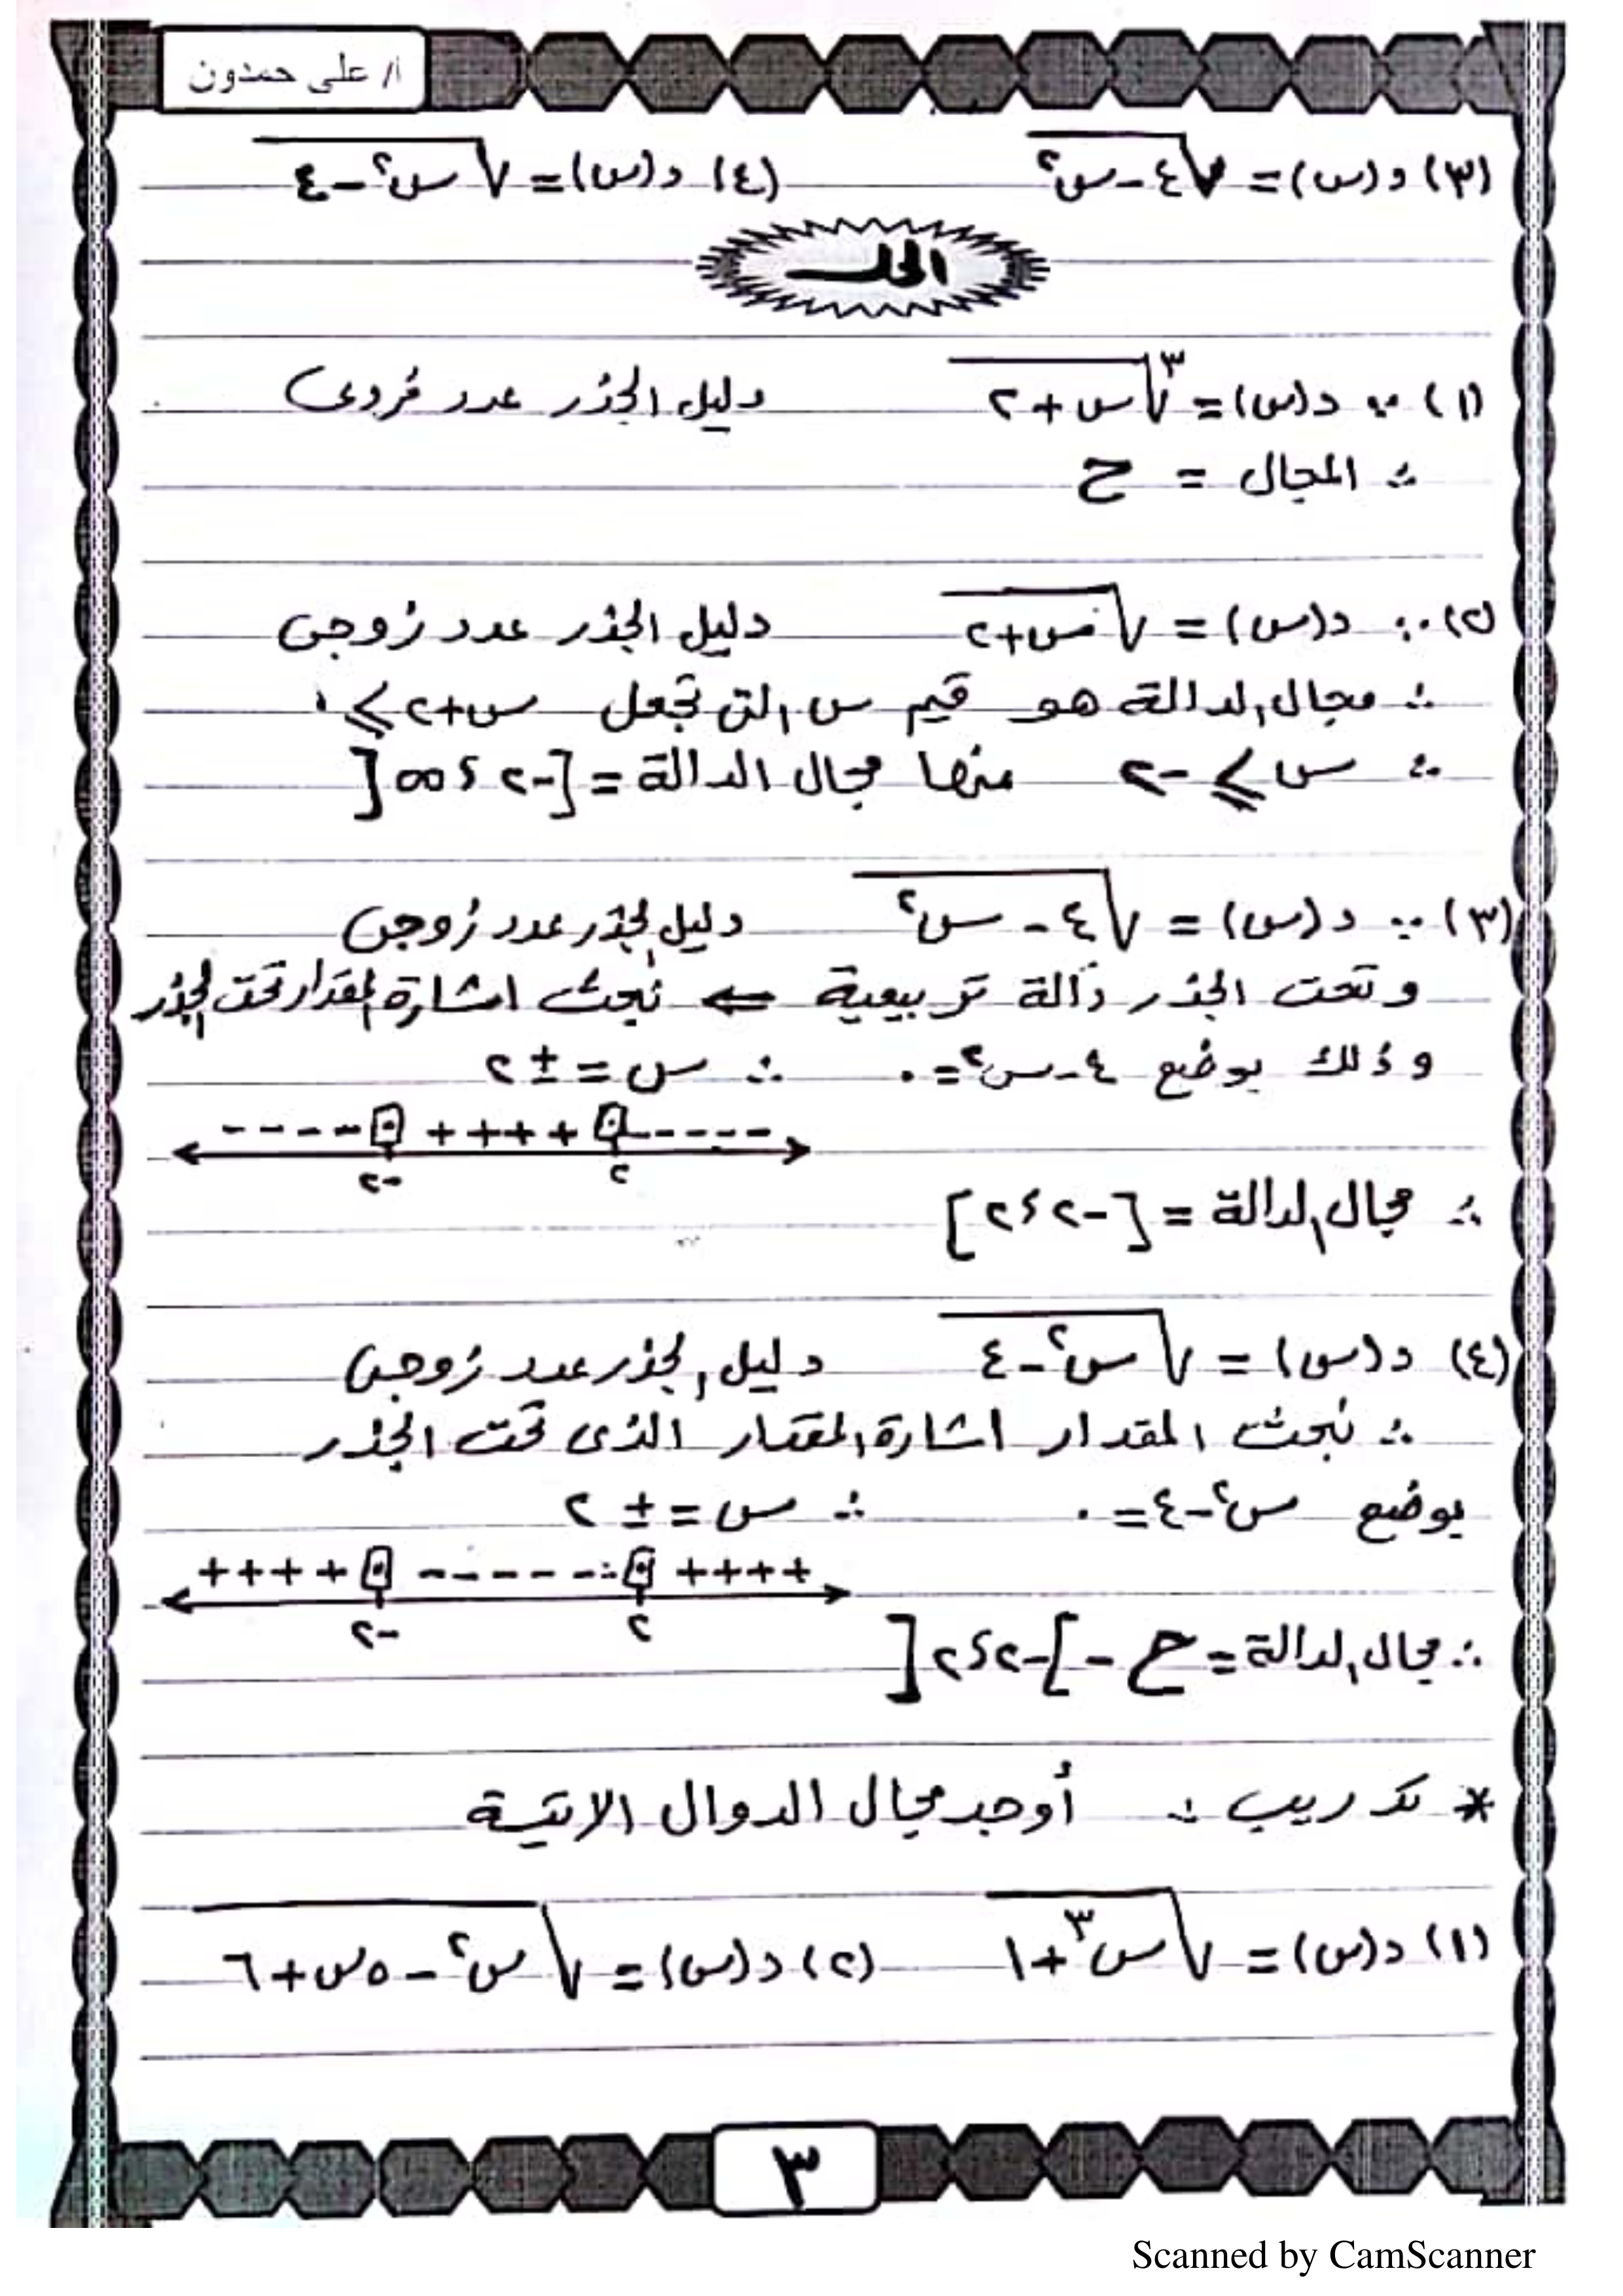 أ/ على حمدون
(٣) د(س) = √(٤ - س٢) (٤) د(س) = √(س٢ - ٤)
الحل
(١) ∵ د(س) = ٣√(س + ٢) دليل الجذر عدد فردى
∴ المجال = ح
(٢) ∵ د(س) = √(س + ٢) دليل الجذر عدد زوجى
∴ مجال الدالة هو قيم س التى تجعل س + ٢ ≥ ٠
∴ س ≥ -٢ منها مجال الدالة = [-٢ ؛ ∞[
(٣) ∵ د(س) = √(٤ - س٢) دليل الجذر عدد زوجى
وتحت الجذر دالة تربيعية ⇐ نبحث اشارة المقدار تحت الجذر
وذلك بوضع ٤ - س٢ = ٠ ∴ س = ± ٢
- - - - ٠ + + + + ٠ - - - - -
-٢ ٢
∴ مجال الدالة = [-٢ ؛ ٢]
(٤) د(س) = √(س٢ - ٤) دليل الجذر عدد زوجى
∴ نبحث المقدار اشارة المقدار الذى تحت الجذر
بوضع س٢ - ٤ = ٠ ∴ س = ± ٢
+ + + + ٠ - - - - - - ٠ + + + +
-٢ ٢
∴ مجال الدالة = ح - ]-٢ ؛ ٢[
* تدريب : أوجد مجال الدوال الاتية
(١) د(س) = √(س٣ + ١) (٢) د(س) = √(س٢ - ٥س + ٦)
٣
Scanned by CamScanner